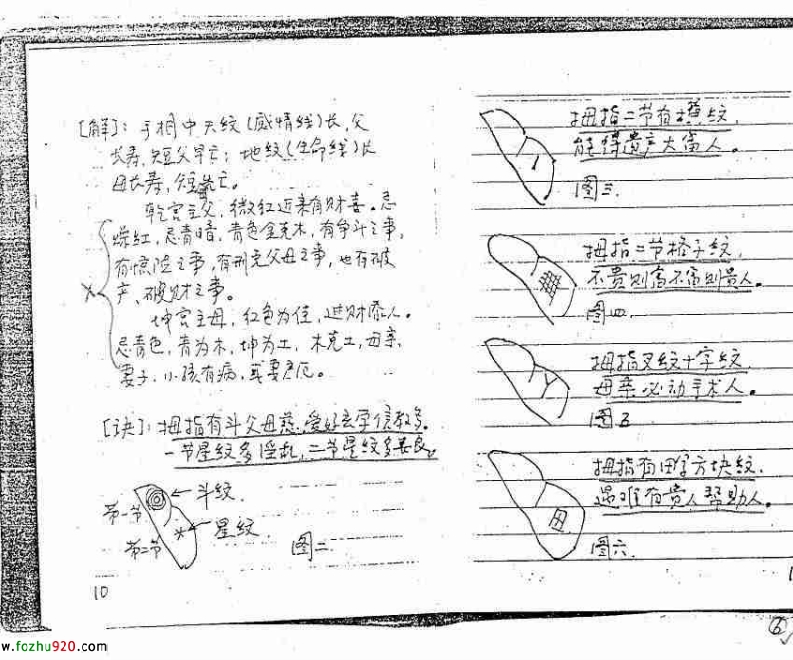 [解]: 手相中天纹(感情线)长,父
长寿,短父早亡; 地纹(生命线)长
母长寿,短先亡。
乾宫主父,微红近来有财喜。忌
燥红,忌青暗,青色金克木,有争斗之事,
有惊险之事,有刑克父母之事,也有破
产、破财之事。
坤宫主母,红色为佳,进财添人。
忌青色,青为木,坤为土,木克土,母亲、
妻子、小孩有病,其妻产厄。
[诀]: 拇指有斗父母慈,爱好玄学信教多。
一节星纹多淫乱,二节星纹多善良。
第一节
斗纹.
第二节
星纹.
图二
10
拇指二节有横纹,
能得遗产大富人。
图三.
拇指二节格子纹,
不贵则富不富则贵人。
图四.
拇指叉纹十字纹
母亲必动手术人。
图五
拇指有田字方块纹,
遇难有贵人帮助人。
图六.
⑥
w.fozhu920.com